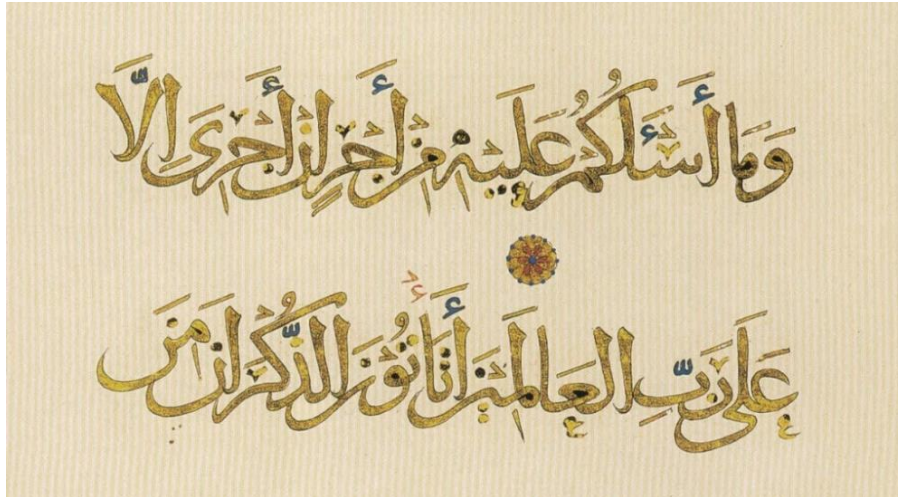 وَمَا أَسْـَٔلُكُمْ عَلَيْهِ مِنْ أَجْرٍ إِنْ أَجْرِىَ إِلَّا
عَلَى رَبِّ الْعَالَمِينَ أَتَأْتُونَ الذُّكْرَانَ مِنَ